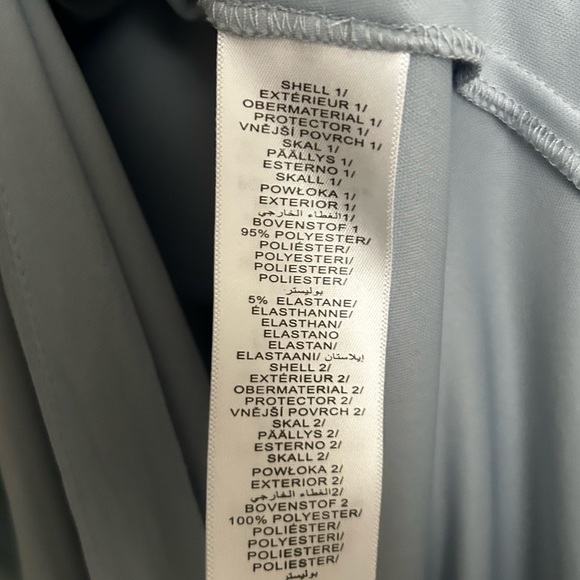 SHELL 1/
EXTÉRIEUR 1/
OBERMATERIAL 1/
PROTECTOR 1/
VNĚJŠÍ POVRCH 1/
SKAL 1/
PÄÄLLYS 1/
ESTERNO 1/
SKALL 1/
POWŁOKA 1/
EXTERIOR 1/
الغطاء الخارجي/1
BOVENSTOF 1
95% POLYESTER/
POLIÉSTER/
POLYESTERI/
POLIESTERE/
POLIESTER/
بوليستر
5% ELASTANE/
ÉLASTHANNE/
ELASTHAN/
ELASTANO
ELASTAN/
ELASTAANI/ إيلاستان/
SHELL 2/
EXTÉRIEUR 2/
OBERMATERIAL 2/
PROTECTOR 2/
VNĚJŠÍ POVRCH 2/
SKAL 2/
PÄÄLLYS 2/
ESTERNO 2/
SKALL 2/
POWŁOKA 2/
EXTERIOR 2/
الغطاء الخارجي/2
BOVENSTOF 2
100% POLYESTER/
POLIÉSTER/
POLYESTERI/
POLIESTERE/
POLIESTER/
بوليستر